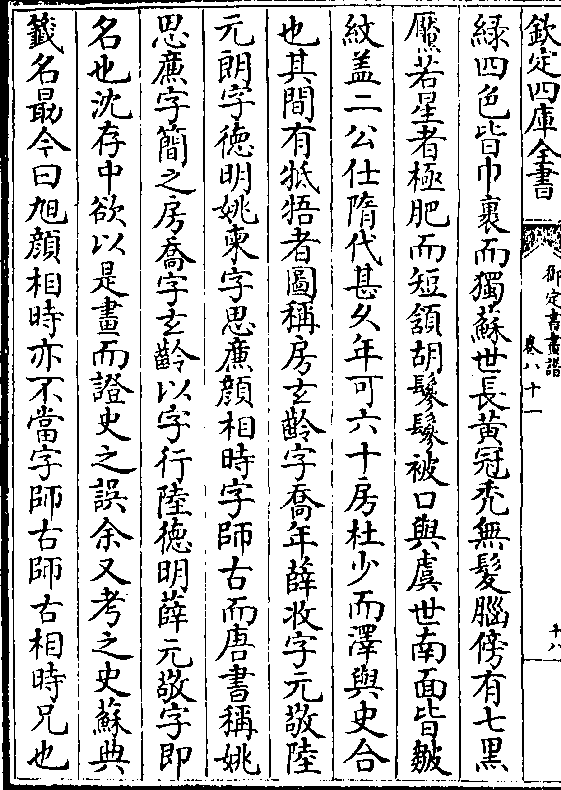 欽定四庫全書
御定書畫譜
卷八十一
十八
緑四色皆巾裹而獨蘇世長黄冠秃無髮腦傍有七黒
黶若星者極肥而短頷胡鬖鬖被口與虞世南面皆皴
紋盖二公仕隋代甚久年可六十房杜少而澤與史合
也其間有牴牾者圖稱房玄齡字喬年薛收字元敬陸
元朗字徳明姚柬字思㢘顔相時字師古而唐書稱姚
思㢘字簡之房喬字玄齡以字行陸徳明薛元敬字即
名也沈存中欲以是畫而證史之誤余又考之史蘇典
籖名最今曰旭顔相時亦不當字師古師古相時兄也